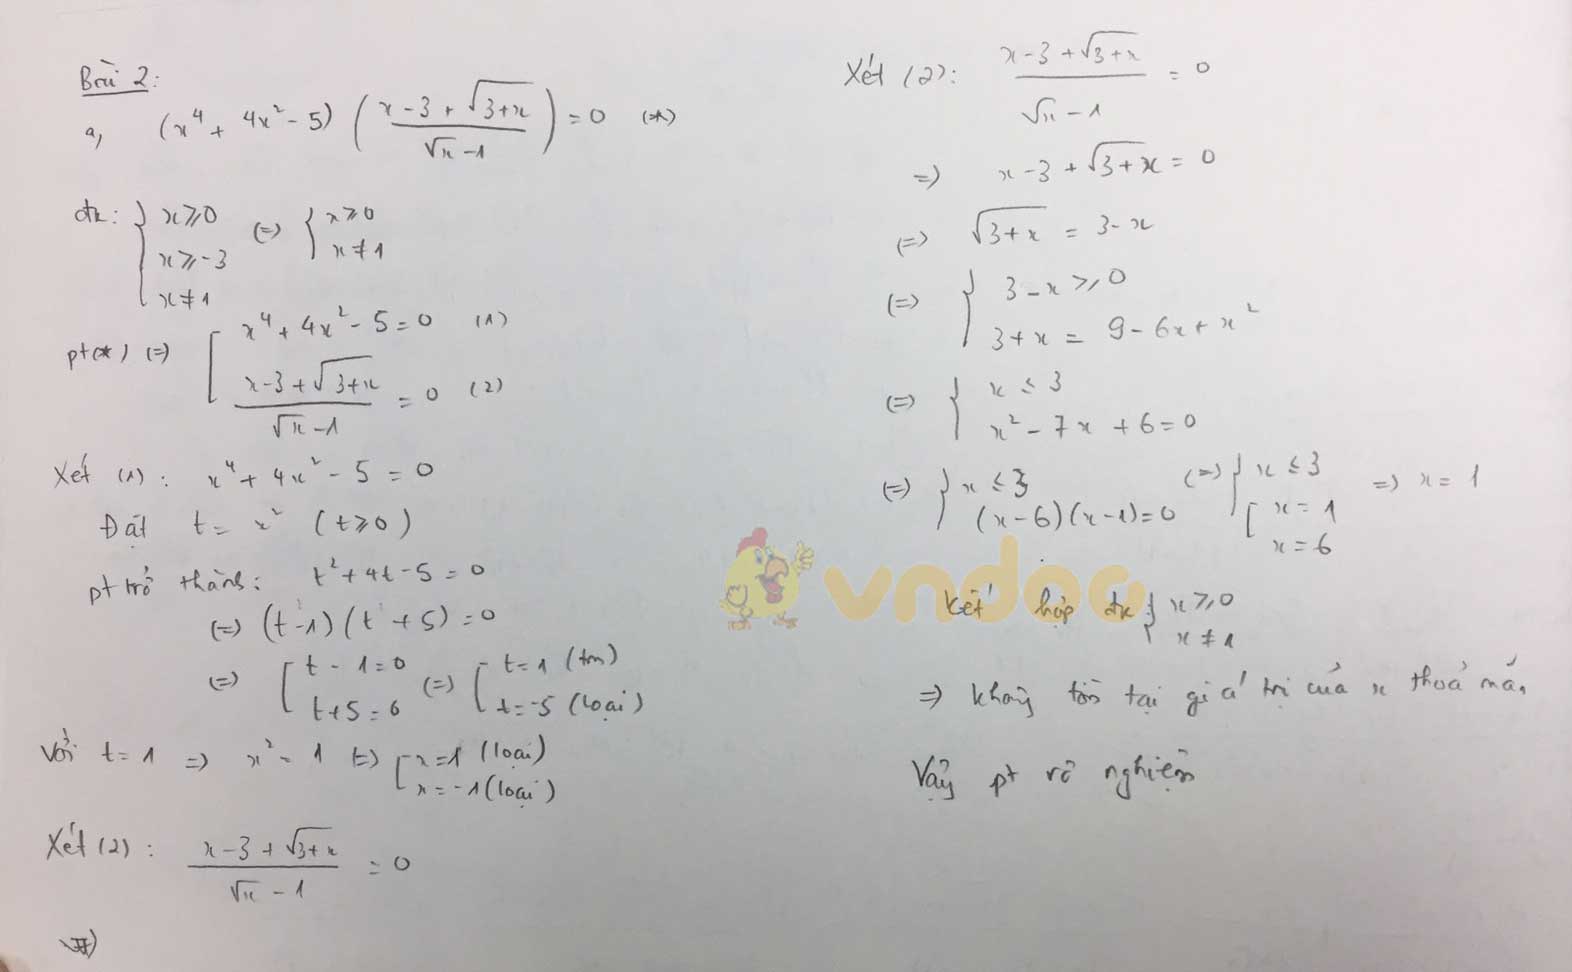 Bài 2:
a, (x⁴ + 4x² - 5) ( (x - 3 + √(3+x)) / (√x - 1) ) = 0 (*)
đk: { x ≥ 0 ; x ≥ -3 ; x ≠ 1 (=) { x ≥ 0 ; x ≠ 1
pt(*) (=) [ x⁴ + 4x² - 5 = 0 (1)
(x - 3 + √(3+x)) / (√x - 1) = 0 (2)
Xét (1): x⁴ + 4x² - 5 = 0
Đặt t = x² (t ≥ 0)
pt trở thành: t² + 4t - 5 = 0
(=) (t - 1)(t + 5) = 0
(=) [ t - 1 = 0 ; t + 5 = 0 (=) [ t = 1 (tm) ; t = -5 (loại)
Với t = 1 => x² = 1 (=) [ x = 1 (loại) ; x = -1 (loại)
Xét (2): (x - 3 + √(3+x)) / (√x - 1) = 0
Xét (2): (x - 3 + √(3+x)) / (√x - 1) = 0
=) x - 3 + √(3+x) = 0
(=) √(3+x) = 3 - x
(=) { 3 - x ≥ 0
3 + x = 9 - 6x + x²
(=) { x ≤ 3
x² - 7x + 6 = 0
(=) { x ≤ 3 ; (x - 6)(x - 1) = 0 (=) { x ≤ 3 ; [ x = 1 ; x = 6 =) x = 1
vndoc
Kết hợp đk { x ≥ 0 ; x ≠ 1
=> không tồn tại giá trị của x thoả mãn
Vậy pt vô nghiệm